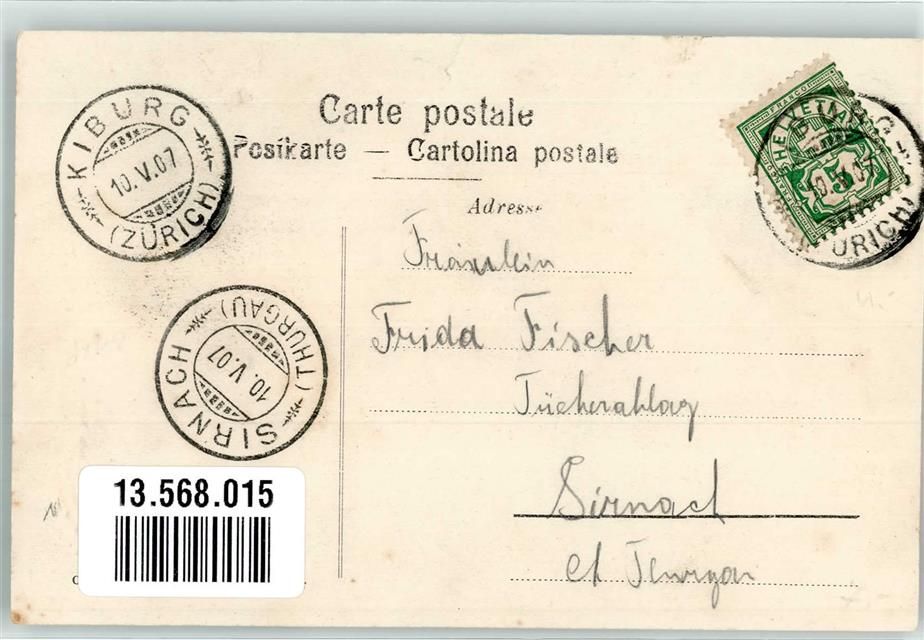 KIBURG
10.V.07
(ZÜRICH)
Carte postale
Postkarte — Cartolina postale
Adresse
FRANCO
HELVETIA
10.V.07
Fräulein
Frida Fischer
Sirnach
SIRNACH
(THURGAU)
10.V.07
13.568.015